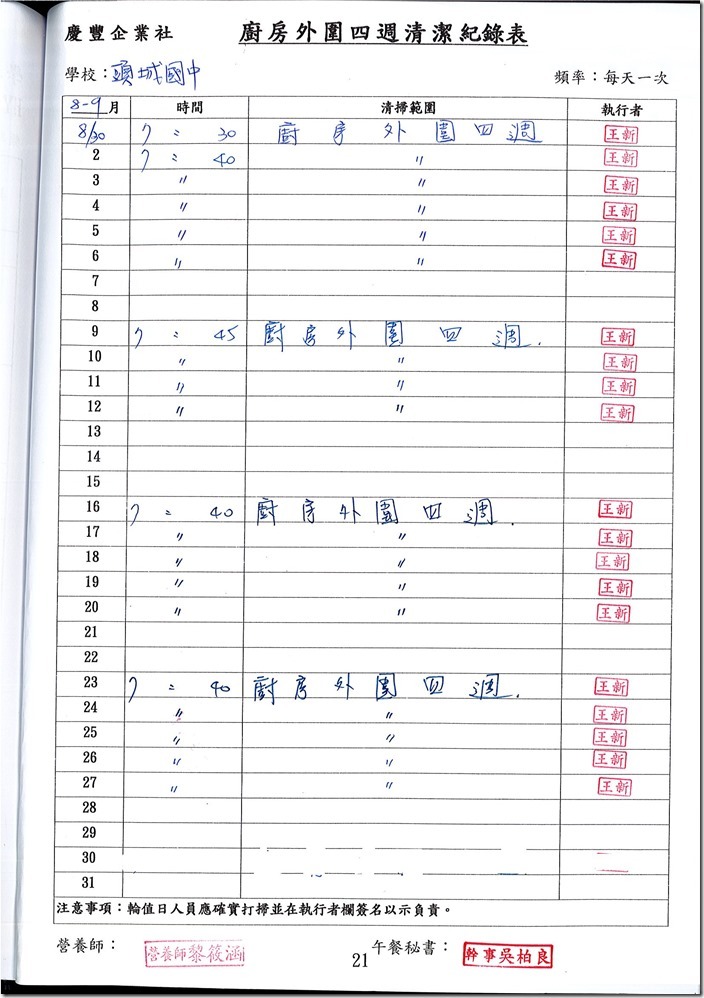 慶豐企業社 廚房外圍四週清潔紀錄表
學校：頭城國中 頻率：每天一次
8-9月 時間 清掃範圍 執行者
8/30 7：30 廚房外圍四週 王新
2 7：40 〃 王新
3 〃 〃 王新
4 〃 〃 王新
5 〃 〃 王新
6 〃 〃 王新
7
8
9 7：45 廚房外圍四週. 王新
10 〃 〃 王新
11 〃 〃 王新
12 〃 〃 王新
13
14
15
16 7：40 廚房外圍四週. 王新
17 〃 〃 王新
18 〃 〃 王新
19 〃 〃 王新
20 〃 〃 王新
21
22
23 7：40 廚房外圍四週. 王新
24 〃 〃 王新
25 〃 〃 王新
26 〃 〃 王新
27 〃 〃 王新
28
29
30
31
注意事項：輪值日人員應確實打掃並在執行者欄簽名以示負責。
營養師： 營養師黎筱涵 午餐秘書： 幹事吳柏良
21